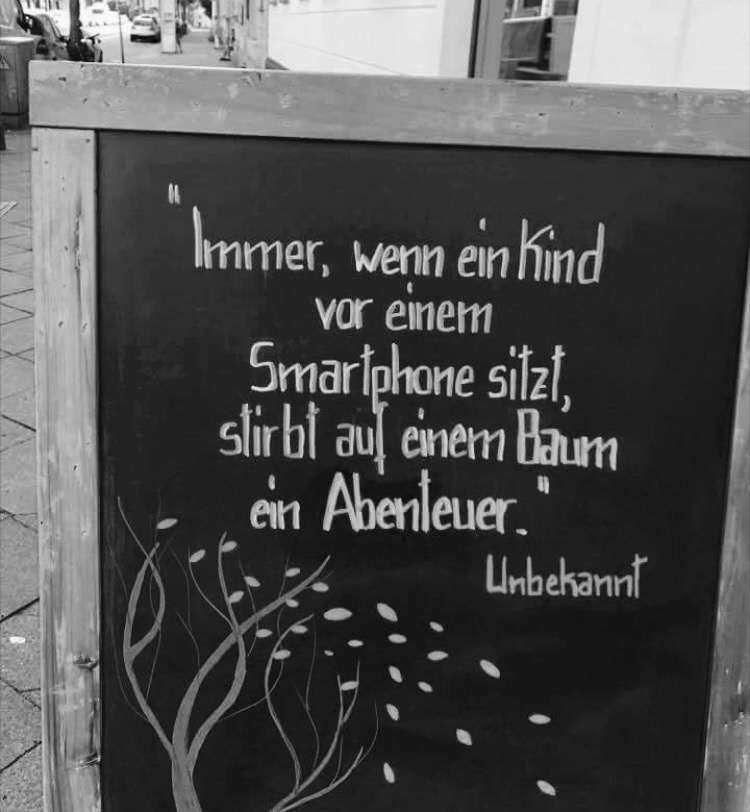 "Immer, wenn ein Kind
vor einem
Smartphone sitzt,
stirbt auf einem Baum
ein Abenteuer."
Unbekannt